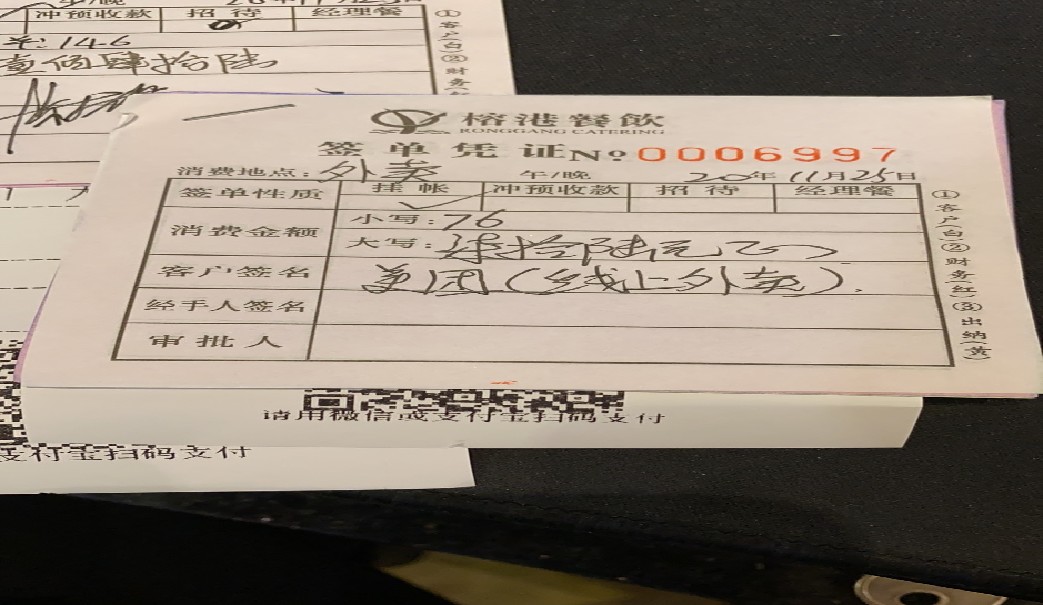 冲预收款 招待 经理餐
146
壹佰肆拾陆
榕港餐飲
RONGGANG CATERING
签单凭证 No 0006997
消费地点: 外卖 午/晚 20年11月25日
签单性质 挂帐 ✓ 冲预收款 招待 经理餐
消费金额 小写: 76
大写: 柒拾陆元
客户签名 美团(线上外卖).
经手人签名
审批人
①客户(白)②财务(红)③出纳(黄)
请用微信或支付宝扫码支付
支付宝扫码支付